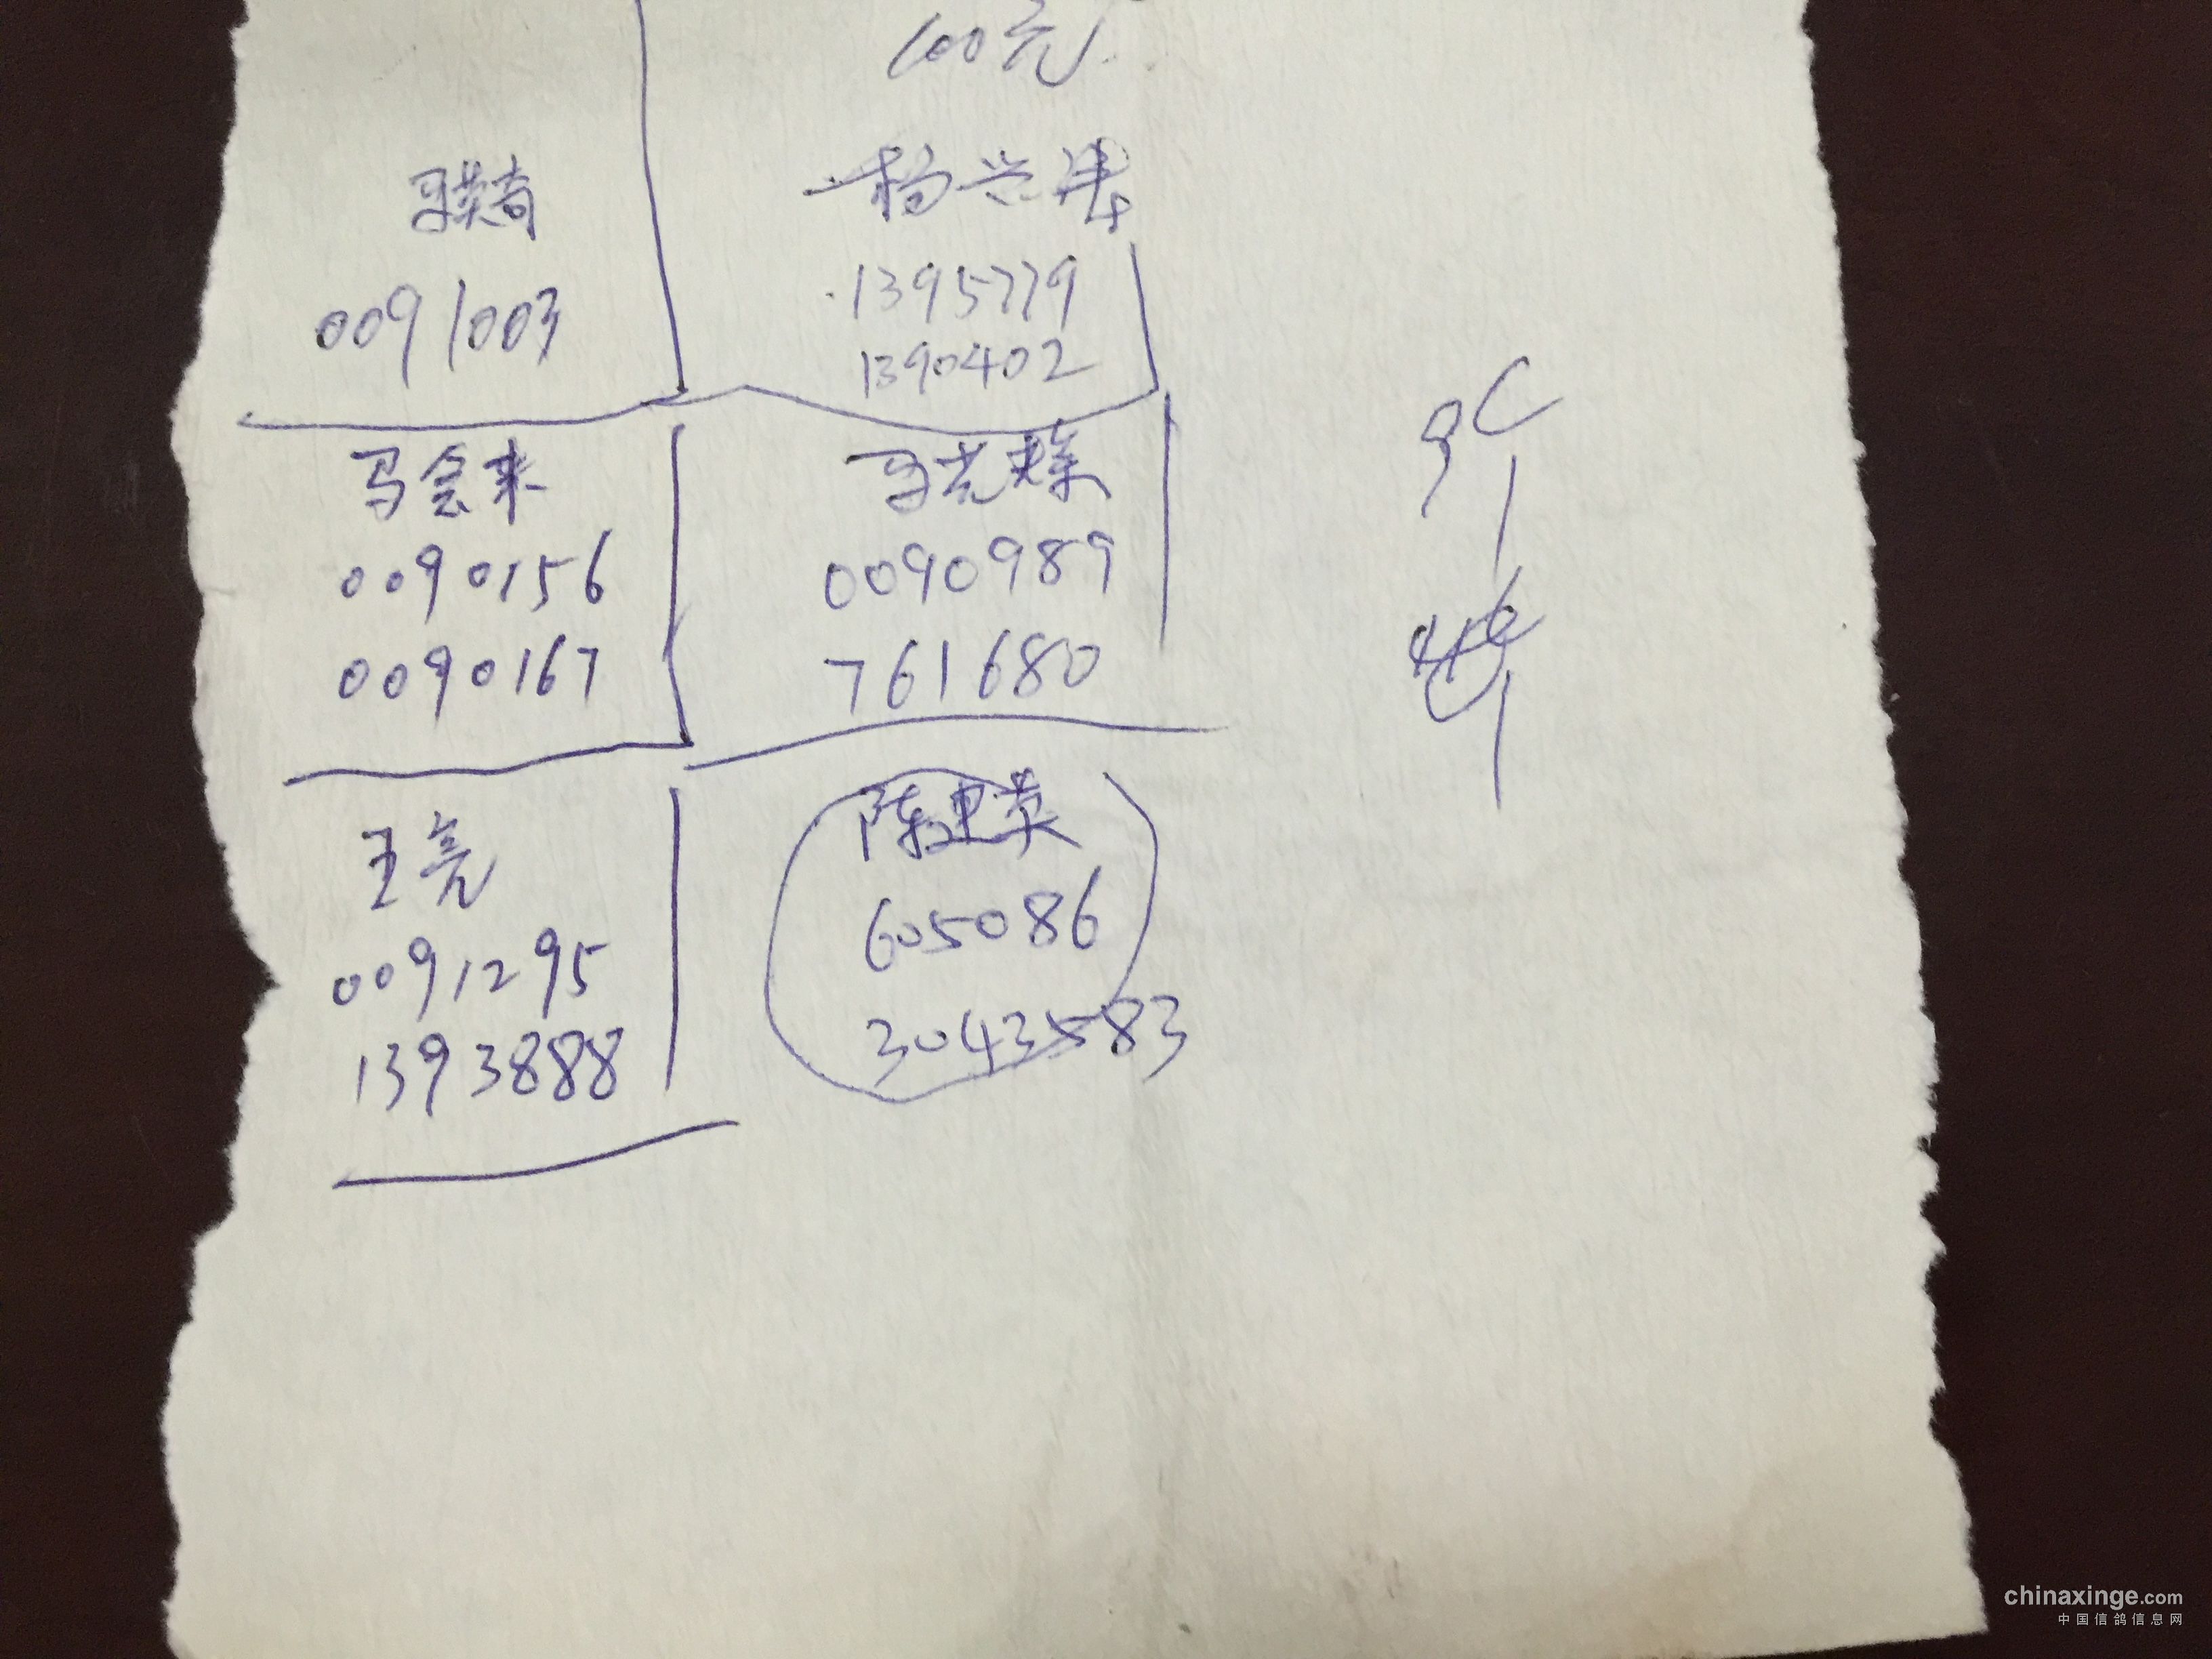 100元
马英奇
0091003
杨兴
1395779
1390402
马会来
0090156
0090167
马光
0090989
761680
王亮
0091295
1393888
陈建英
605086
3043583
chinaxinge.com
中国信鸽信息网